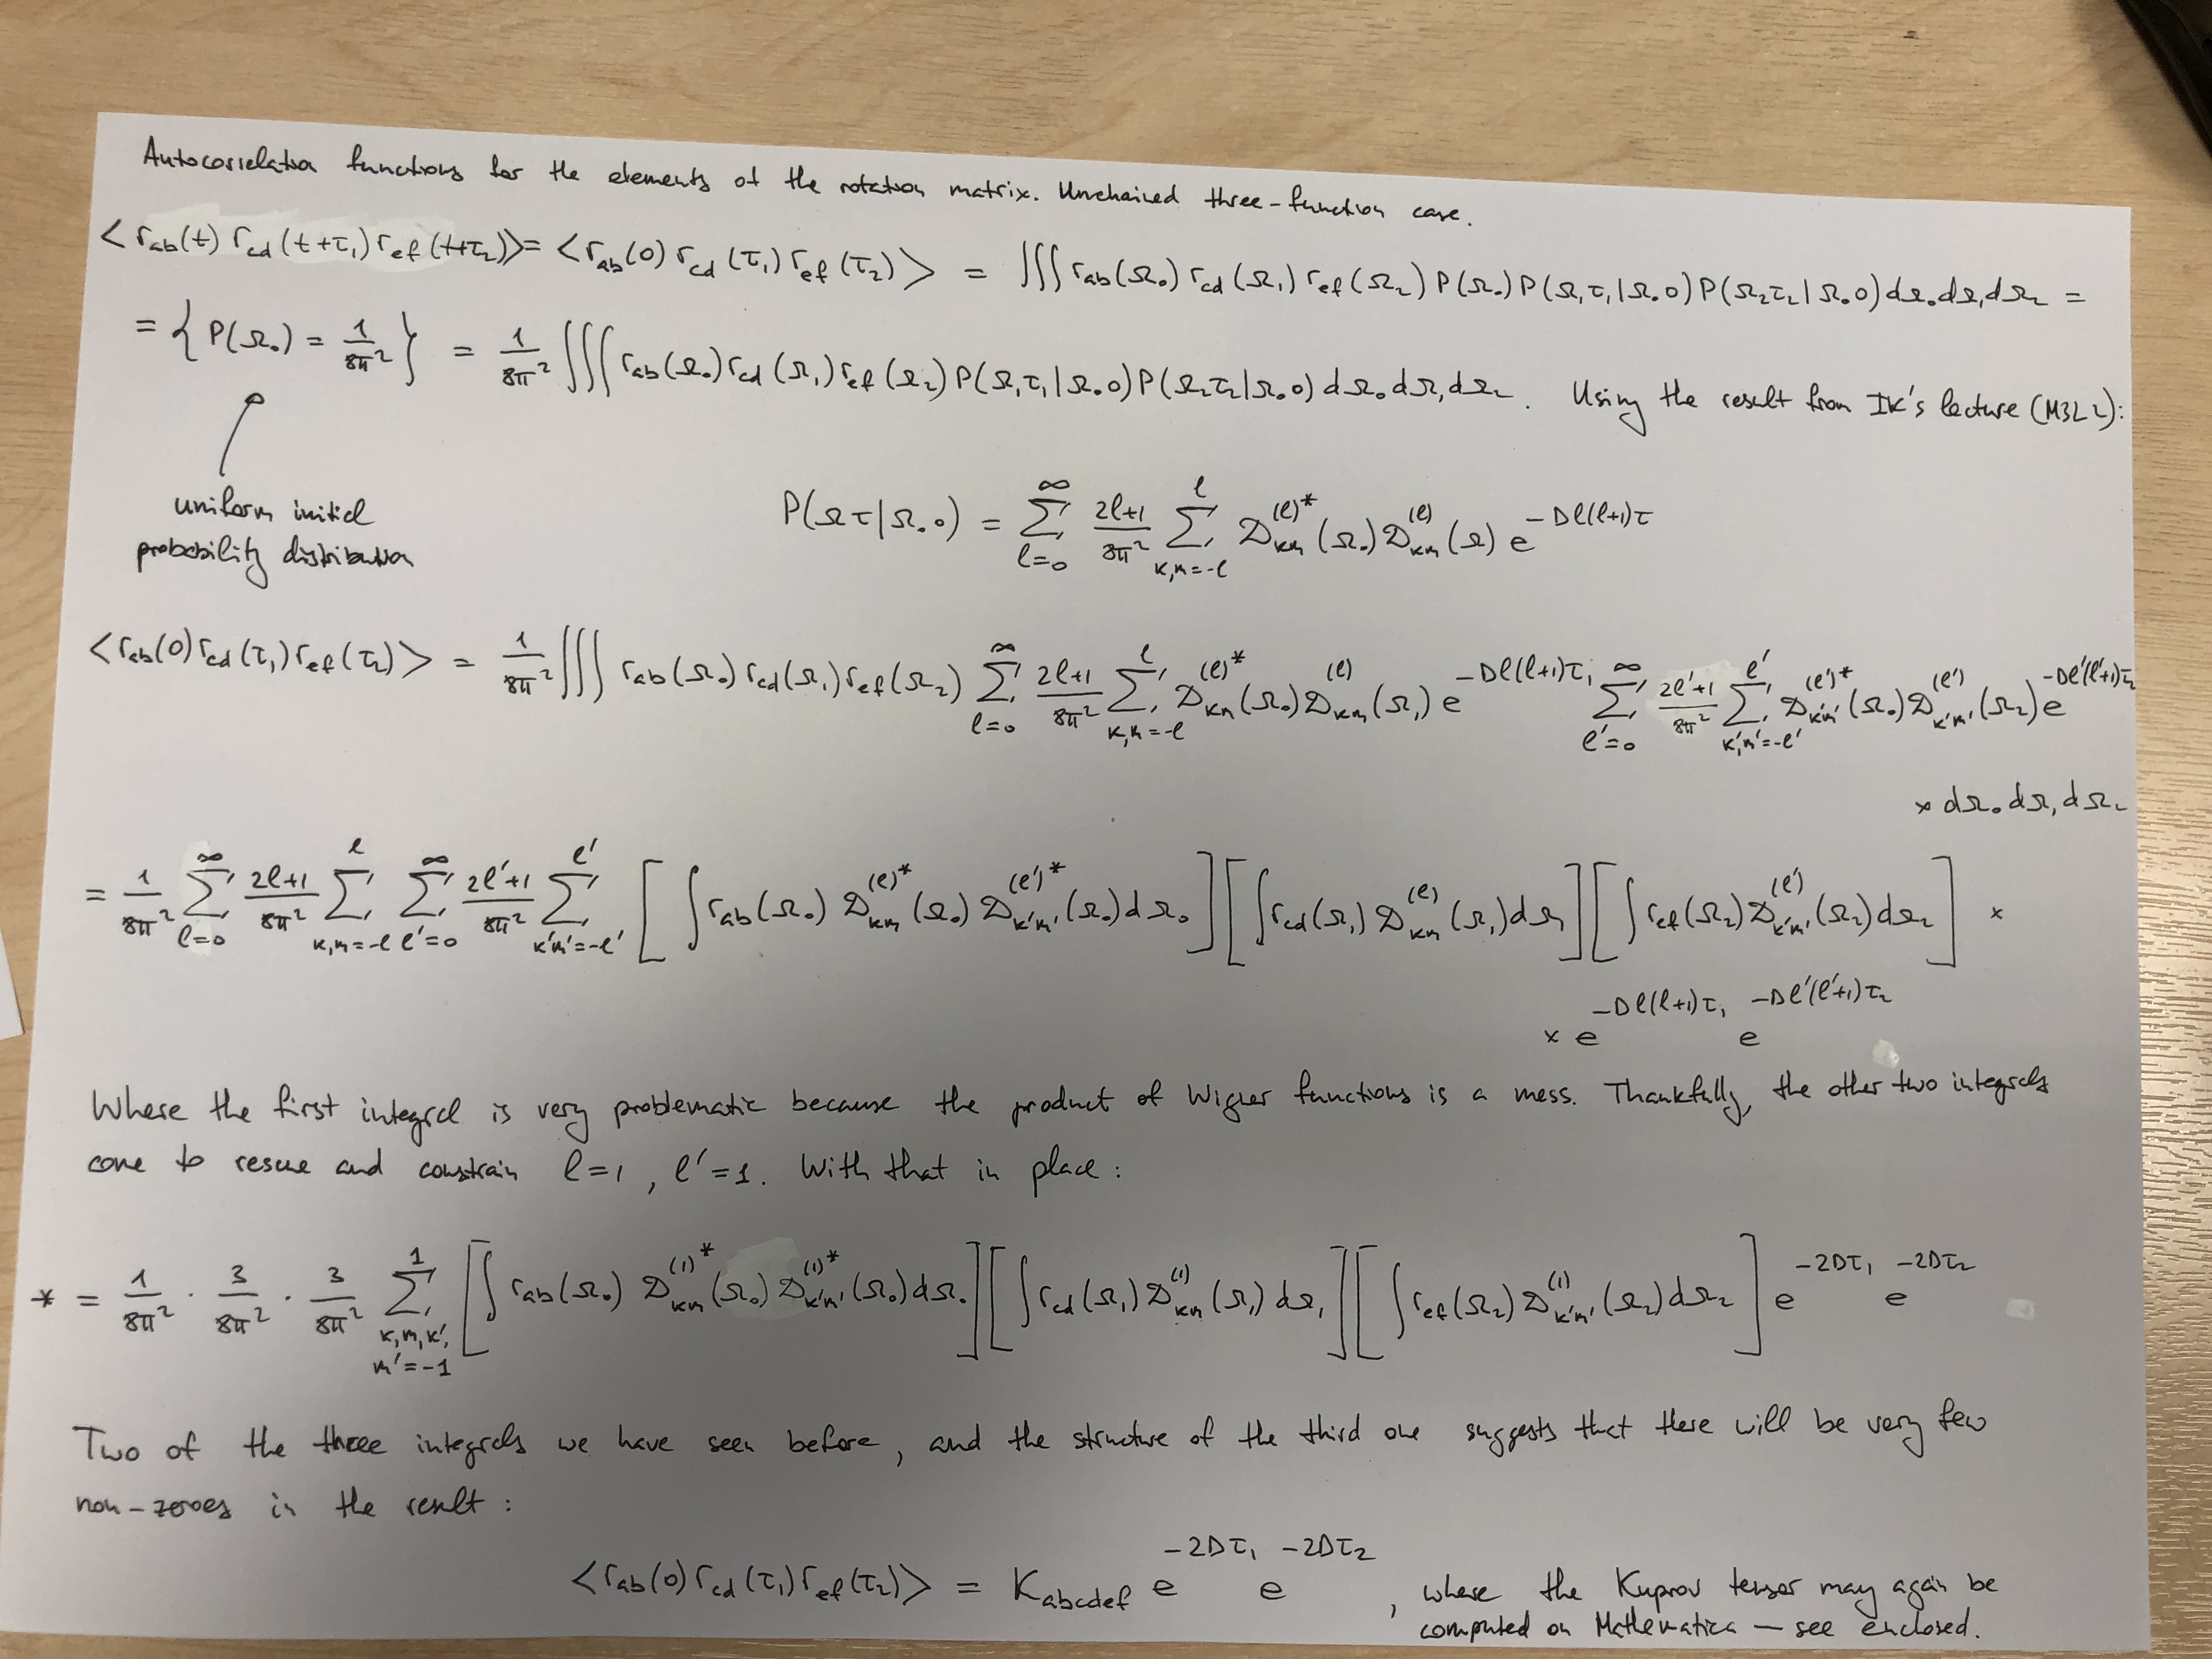 Autocorrelation functions for the elements of the rotation matrix. Unchained three-function case.
⟨r_ab(t) r_cd(t+τ₁) r_ef(t+τ₂)⟩ = ⟨r_ab(0) r_cd(τ₁) r_ef(τ₂)⟩ = ∭ r_ab(Ω₀) r_cd(Ω₁) r_ef(Ω₂) P(Ω₀) P(Ω₁τ₁|Ω₀0) P(Ω₂τ₂|Ω₀0) dΩ₀dΩ₁dΩ₂ =
= { P(Ω₀) = 1/8π² } = 1/8π² ∭ r_ab(Ω₀) r_cd(Ω₁) r_ef(Ω₂) P(Ω₁τ₁|Ω₀0) P(Ω₂τ₂|Ω₀0) dΩ₀dΩ₁dΩ₂. Using the result from IK's lecture (M3L2):
uniform initial
probability distribution
P(Ωτ|Ω₀0) = ∑_{l=0}^{∞} (2l+1)/8π² ∑_{k,m=-l}^{l} 𝔇_{km}^{(l)*}(Ω₀) 𝔇_{km}^{(l)}(Ω) e^{-Dl(l+1)τ}
⟨r_ab(0) r_cd(τ₁) r_ef(τ₂)⟩ = 1/8π² ∭ r_ab(Ω₀) r_cd(Ω₁) r_ef(Ω₂) ∑_{l=0}^{∞} (2l+1)/8π² ∑_{k,m=-l}^{l} 𝔇_{km}^{(l)*}(Ω₀) 𝔇_{km}^{(l)}(Ω₁) e^{-Dl(l+1)τ₁} ∑_{l'=0}^{∞} (2l'+1)/8π² ∑_{k',m'=-l'}^{l'} 𝔇_{k'm'}^{(l')*}(Ω₀) 𝔇_{k'm'}^{(l')}(Ω₂) e^{-Dl'(l'+1)τ₂}
× dΩ₀dΩ₁dΩ₂
= 1/8π² ∑_{l=0}^{∞} (2l+1)/8π² ∑_{k,m=-l}^{l} ∑_{l'=0}^{∞} (2l'+1)/8π² ∑_{k'm'=-l'}^{l'} [ ∫ r_ab(Ω₀) 𝔇_{km}^{(l)*}(Ω₀) 𝔇_{k'm'}^{(l')*}(Ω₀) dΩ₀ ] [ ∫ r_cd(Ω₁) 𝔇_{km}^{(l)}(Ω₁) dΩ₁ ] [ ∫ r_ef(Ω₂) 𝔇_{k'm'}^{(l')}(Ω₂) dΩ₂ ] ×
× e^{-Dl(l+1)τ₁} e^{-Dl'(l'+1)τ₂}
Where the first integral is very problematic because the product of Wigner functions is a mess. Thankfully, the other two integrals
come to rescue and constrain l=1, l'=1. With that in place:
* = 1/8π² · 3/8π² · 3/8π² ∑_{k,m,k',m'=-1}^{1} [ ∫ r_ab(Ω₀) 𝔇_{km}^{(1)*}(Ω₀) 𝔇_{k'm'}^{(1)*}(Ω₀) dΩ₀ ] [ ∫ r_cd(Ω₁) 𝔇_{km}^{(1)}(Ω₁) dΩ₁ ] [ ∫ r_ef(Ω₂) 𝔇_{k'm'}^{(1)}(Ω₂) dΩ₂ ] e^{-2Dτ₁} e^{-2Dτ₂}
Two of the three integrals we have seen before, and the structure of the third one suggests that there will be very few
non-zeroes in the result:
⟨r_ab(0) r_cd(τ₁) r_ef(τ₂)⟩ = K_abcdef e^{-2Dτ₁} e^{-2Dτ₂}, where the Kuprov tensor may again be
computed on Mathematica — see enclosed.